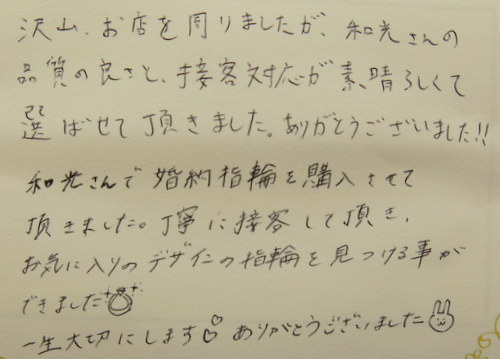 沢山、お店を周りましたが、和光さんの
品質の良さと、接客対応が素晴らしくて
選ばせて頂きました。ありがとうございました!!
和光さんで婚約指輪を購入させて
頂きました。丁寧に接客して頂き、
お気に入りのデザインの指輪を見つける事が
できました
一生大切にします ありがとうございました